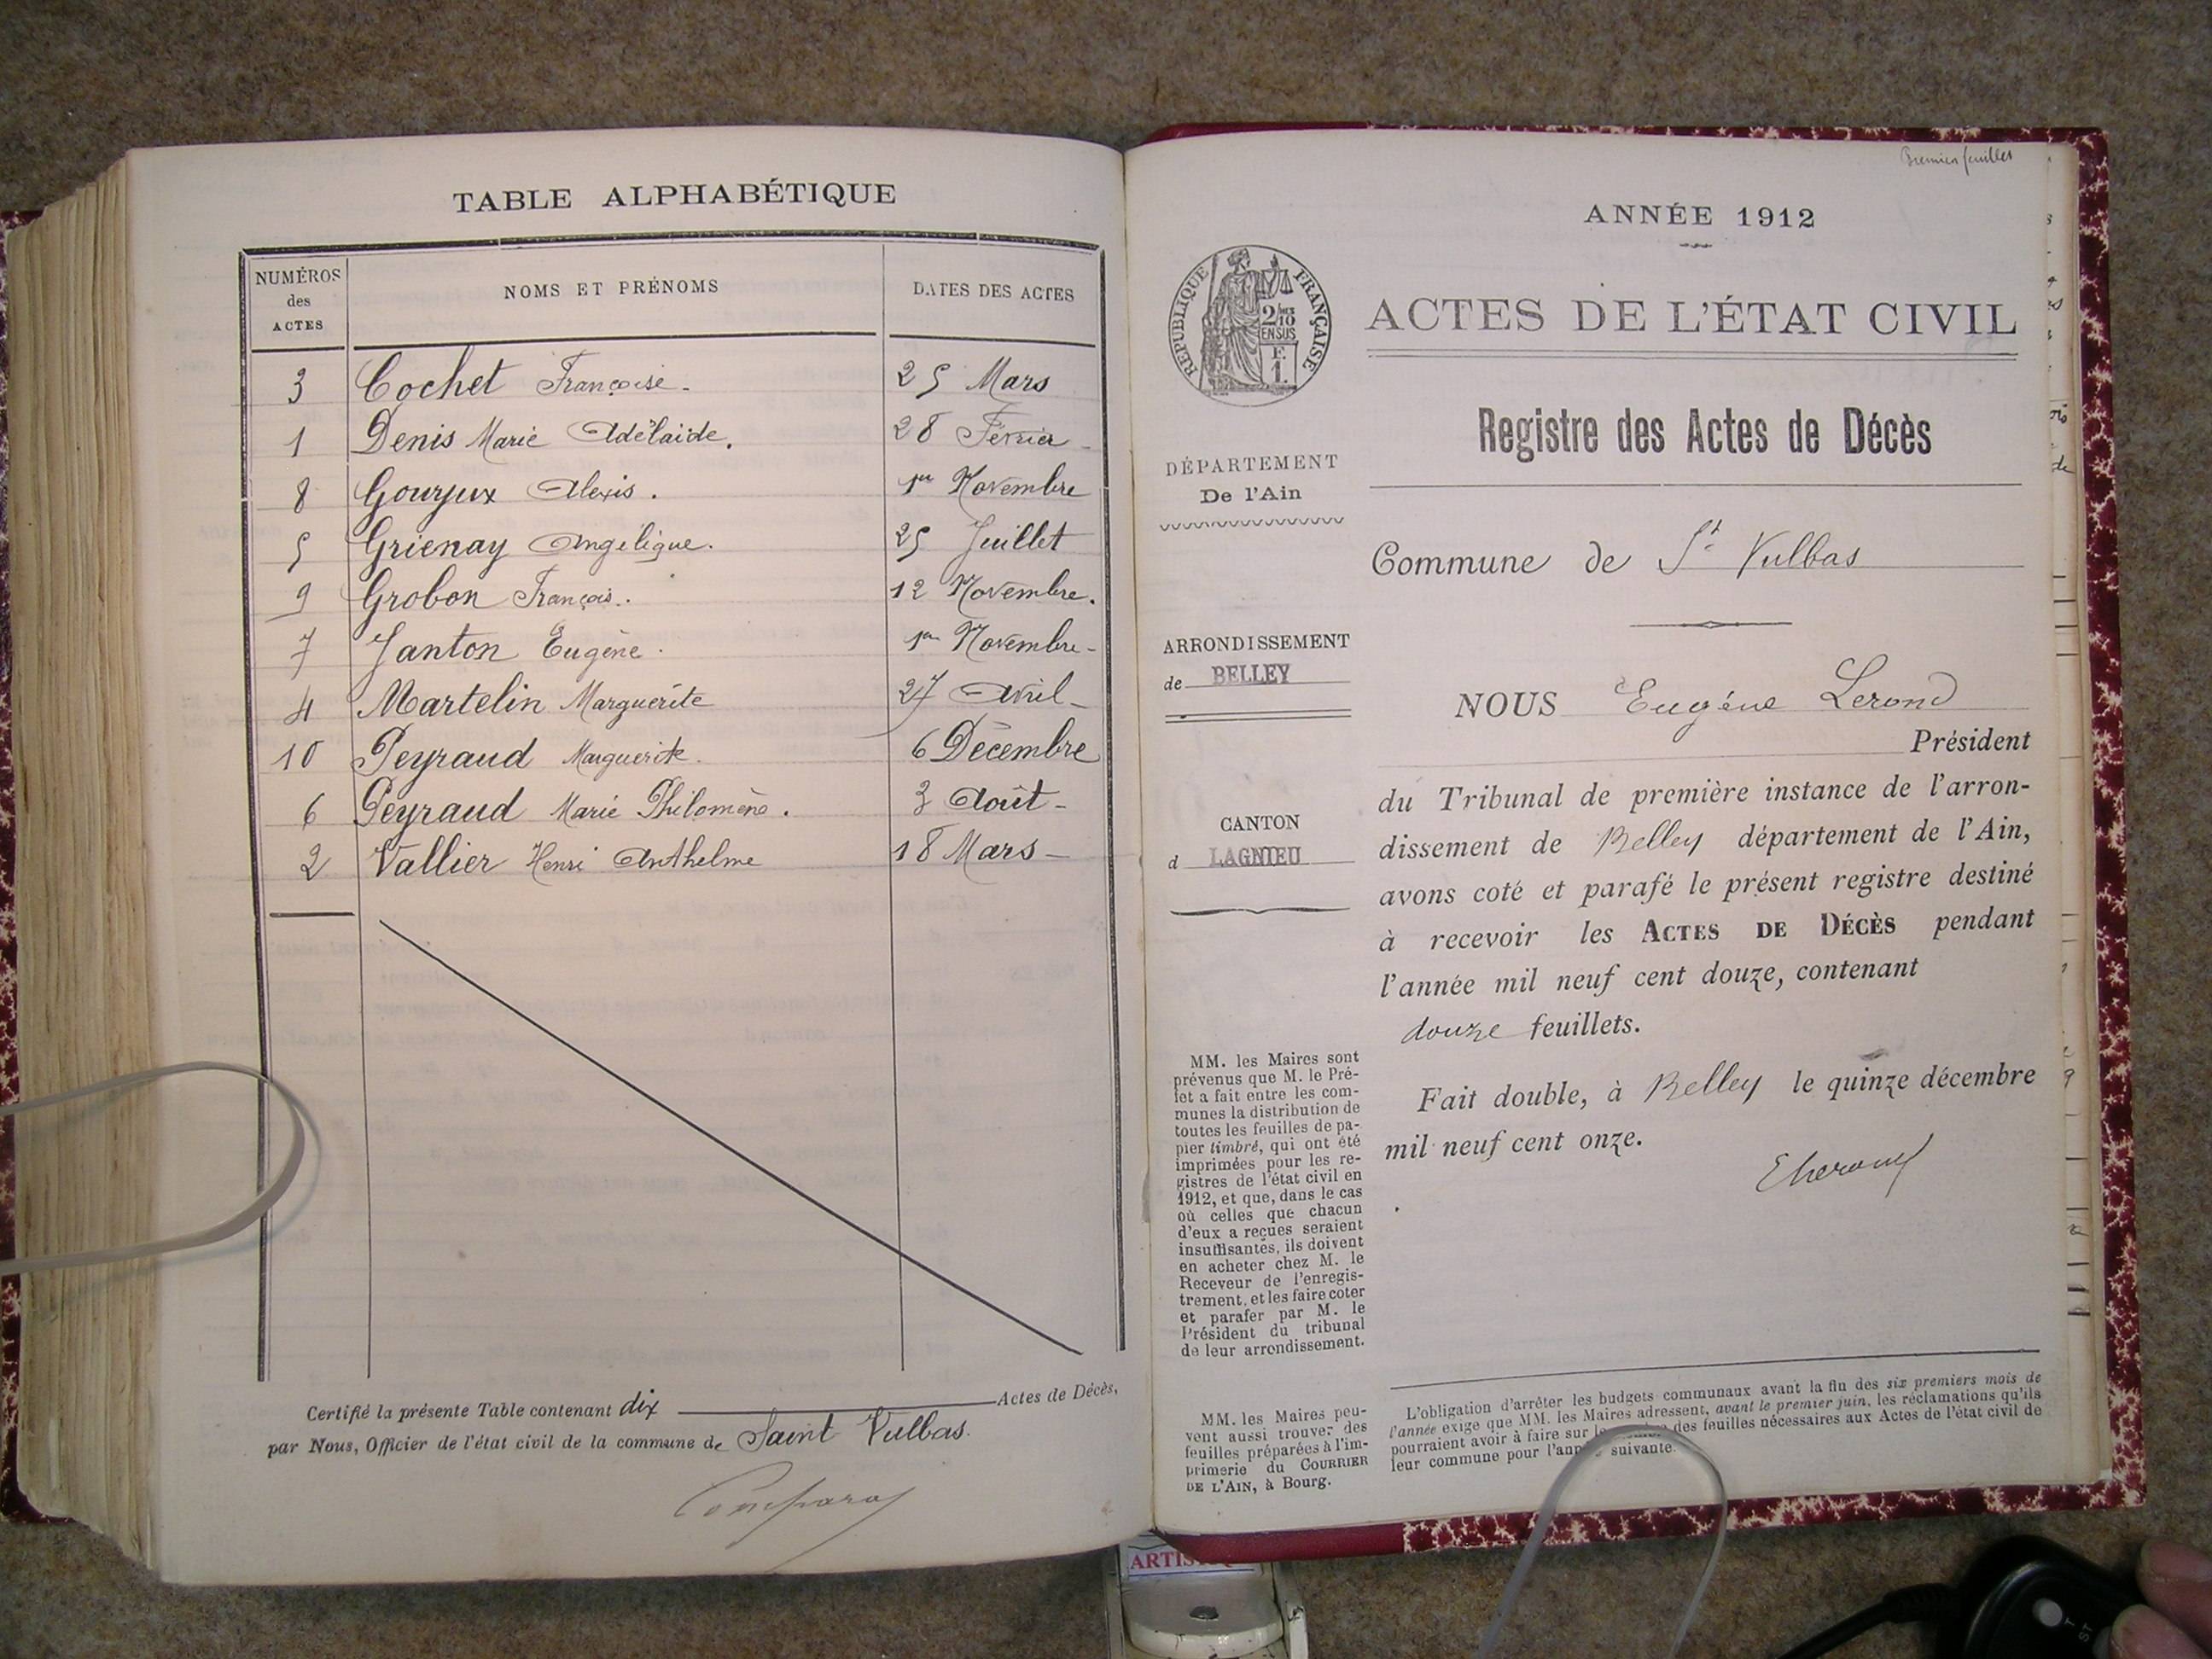 TABLE ALPHABÉTIQUE
NUMÉROS des ACTES NOMS ET PRÉNOMS DATES DES ACTES
3 Cochet Françoise. 25 Mars
1 Denis Marie Adélaïde. 28 Février
8 Gourjux Alexis. 1er Novembre
5 Grienay Angélique. 25 Juillet
9 Grobon François. 12 Novembre.
7 Janton Eugène. 1er Novembre
4 Martelin Marguerite 27 Avril
10 Peyraud Marguerite. 6 Décembre
6 Peyraud Marie Philomène. 3 Août
2 Vallier Henri Anthelme 18 Mars
Certifié la présente Table contenant dix Actes de Décès,
par Nous, Officier de l'état civil de la commune de Saint Vulbas.
Premier feuillet
ANNÉE 1912
RÉPUBLIQUE FRANÇAISE
2/10 EN SUS
F. 1.
ACTES DE L'ÉTAT CIVIL
Registre des Actes de Décès
DÉPARTEMENT
De l'Ain
Commune de St Vulbas
ARRONDISSEMENT
de BELLEY
NOUS Eugène Lerond
Président
du Tribunal de première instance de l'arron-
dissement de Belley département de l'Ain,
avons coté et parafé le présent registre destiné
à recevoir les ACTES DE DÉCÈS pendant
l'année mil neuf cent douze, contenant
douze feuillets.
Fait double, à Belley le quinze décembre
mil neuf cent onze.
CANTON
d LAGNIEU
MM. les Maires sont
prévenus que M. le Pré-
fet a fait entre les com-
munes la distribution de
toutes les feuilles de pa-
pier timbré, qui ont été
imprimées pour les re-
gistres de l'état civil en
1912, et que, dans le cas
où celles que chacun
d'eux a reçues seraient
insuffisantes, ils doivent
en acheter chez M. le
Receveur de l'enregis-
trement, et les faire coter
et parafer par M. le
Président du tribunal
de leur arrondissement.
MM. les Maires peu-
vent aussi trouver des
feuilles préparées à l'im-
primerie du COURRIER
DE L'AIN, à Bourg.
L'obligation d'arrêter les budgets communaux avant la fin des six premiers mois de
l'année exige que MM. les Maires adressent, avant le premier juin, les réclamations qu'ils
pourraient avoir à faire sur des feuilles nécessaires aux Actes de l'état civil de
leur commune pour l'année suivante.